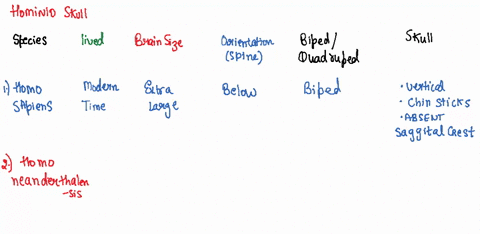 HOMINID SKULL
Species lived Brain Size Orientation Biped/ Skull
(Spine) Quadruped
1.) Homo Modern Extra Below Biped • Vertical
Sapiens Time Large • Chin Sticks
• ABSENT
Saggital Crest
2.) Homo
neanderthalen
-sis